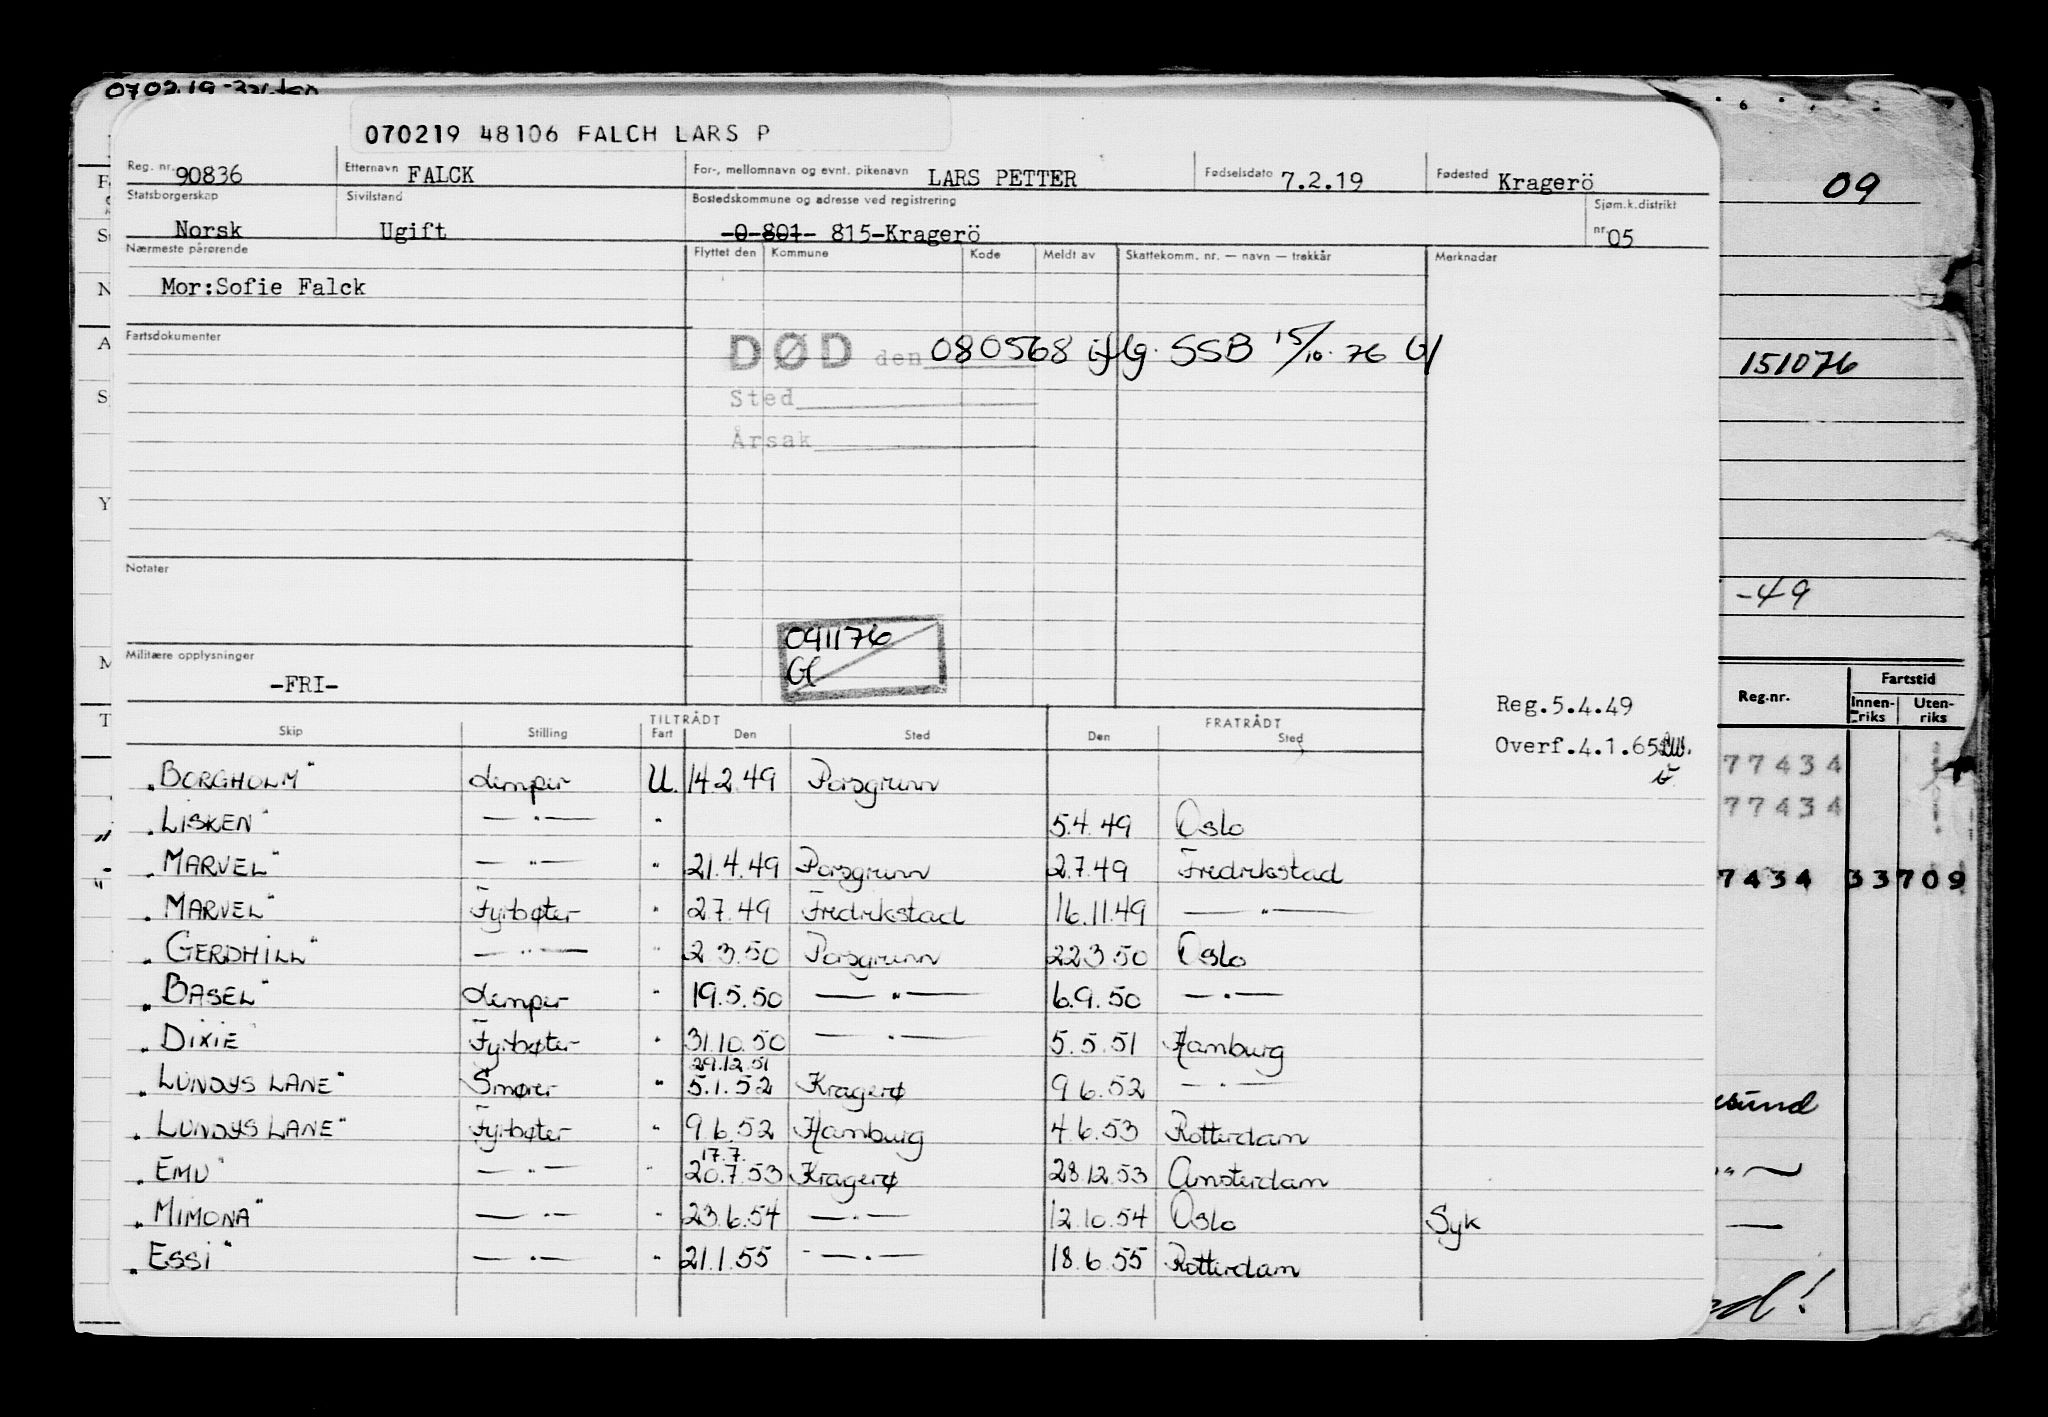 070219
070219 48106 FALCH LARS P
Reg. nr. 90836 Etternavn FALCK For-, mellomnavn og evnt. pikenavn LARS PETTER Fødselsdato 7.2.19 Fødested Kragerö
Statsborgerskap Norsk Sivilstand Ugift Bostedskommune og adresse ved registrering -0-801- 815-Kragerö Sjøm.k.distrikt nr. 05
09
Nærmeste pårørende Flyttet den Kommune Kode Meldt av Skattekomm. nr. — navn — trekkår Merknader
Mor:Sofie Falck
Fartsdokumenter
DØD den 080568 iflg. SSB 15/10-76 Gl
151076
Sted
Årsak
Notater
-49
041176
Gl
Militære opplysninger
-FRI-
Reg.5.4.49
Overf.4.1.65
Reg.nr. Fartstid
Innen-riks Uten-riks
TILTRÅDT FRATRÅDT
Skip Stilling Fart Den Sted Den Sted
"BORGHOLM" Lemper U. 14.2.49 Porsgrunn
77434
"LISKEN" —"— " 5.4.49 Oslo
77434
"MARVEL" —"— " 21.4.49 Porsgrunn 2.7.49 Fredrikstad
7434 33709
"MARVEL" Fyrbøter " 2.7.49 Fredrikstad 16.11.49 —"—
"GERDHILL" —"— " 2.3.50 Porsgrunn 22.3.50 Oslo
"BASEL" Lemper " 19.5.50 —"— 6.9.50 —"—
"DIXIE" Fyrbøter " 31.10.50 —"— 5.5.51 Hamburg
29.12.51
"LUNDYS LANE" Smører " 5.1.52 Kragerø 9.6.52 —"—
"LUNDYS LANE" Fyrbøter " 9.6.52 Hamburg 4.6.53 Rotterdam
17.7.
"EMU" —"— " 20.7.53 Kragerø 28.12.53 Amsterdam
"MIMONA" —"— " 23.6.54 —"— 12.10.54 Oslo Syk
"ESSI" —"— " 21.1.55 —"— 18.6.55 Rotterdam